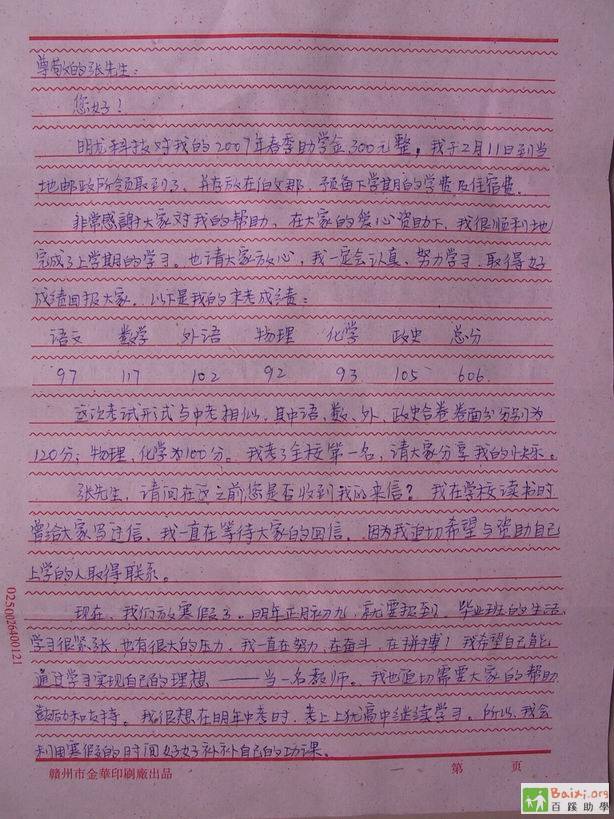 尊敬的张先生：
您好！
明龙科技对我的2007年春季助学金300元整，我于2月11日到当
地邮政所领取到了，并存放在伯父那，预备下学期的学费及住宿费。
非常感謝大家对我的帮助，在大家的爱心资助下，我很顺利地
完成了上学期的学习。也请大家放心，我一定会认真、努力学习，取得好
成绩回报大家。以下是我的末考成绩：
语文 数学 外语 物理 化学 政史 总分
97 117 102 92 93 105 606.
这次考试形式与中考相似，其中语、数、外、政史合卷卷面分分别为
120分；物理、化学为100分。我考了全校第一名，请大家分享我的快乐。
张先生，请问在这之前，您是否收到我的来信？我在学校读书时
曾给大家写过信，我一直在等待大家的回信。因为我迫切希望与资助自己
上学的人取得联系。
现在，我们放寒假了。明年正月初九，就要报到，毕业班的生活，
学习很紧张，也有很大的压力，我一直在努力，在奋斗，在拼搏！我希望自己能
通过学习实现自己的理想——当一名教师。我也迫切需要大家的帮助，
鼓励和支持。我很想在明年中考时，考上上犹高中继续学习。所以，我会
利用寒假的时间好好补补自己的功课。
0250026400121
贛州市金華印刷廠出品 第 页
Baixi.org
百蹊助學